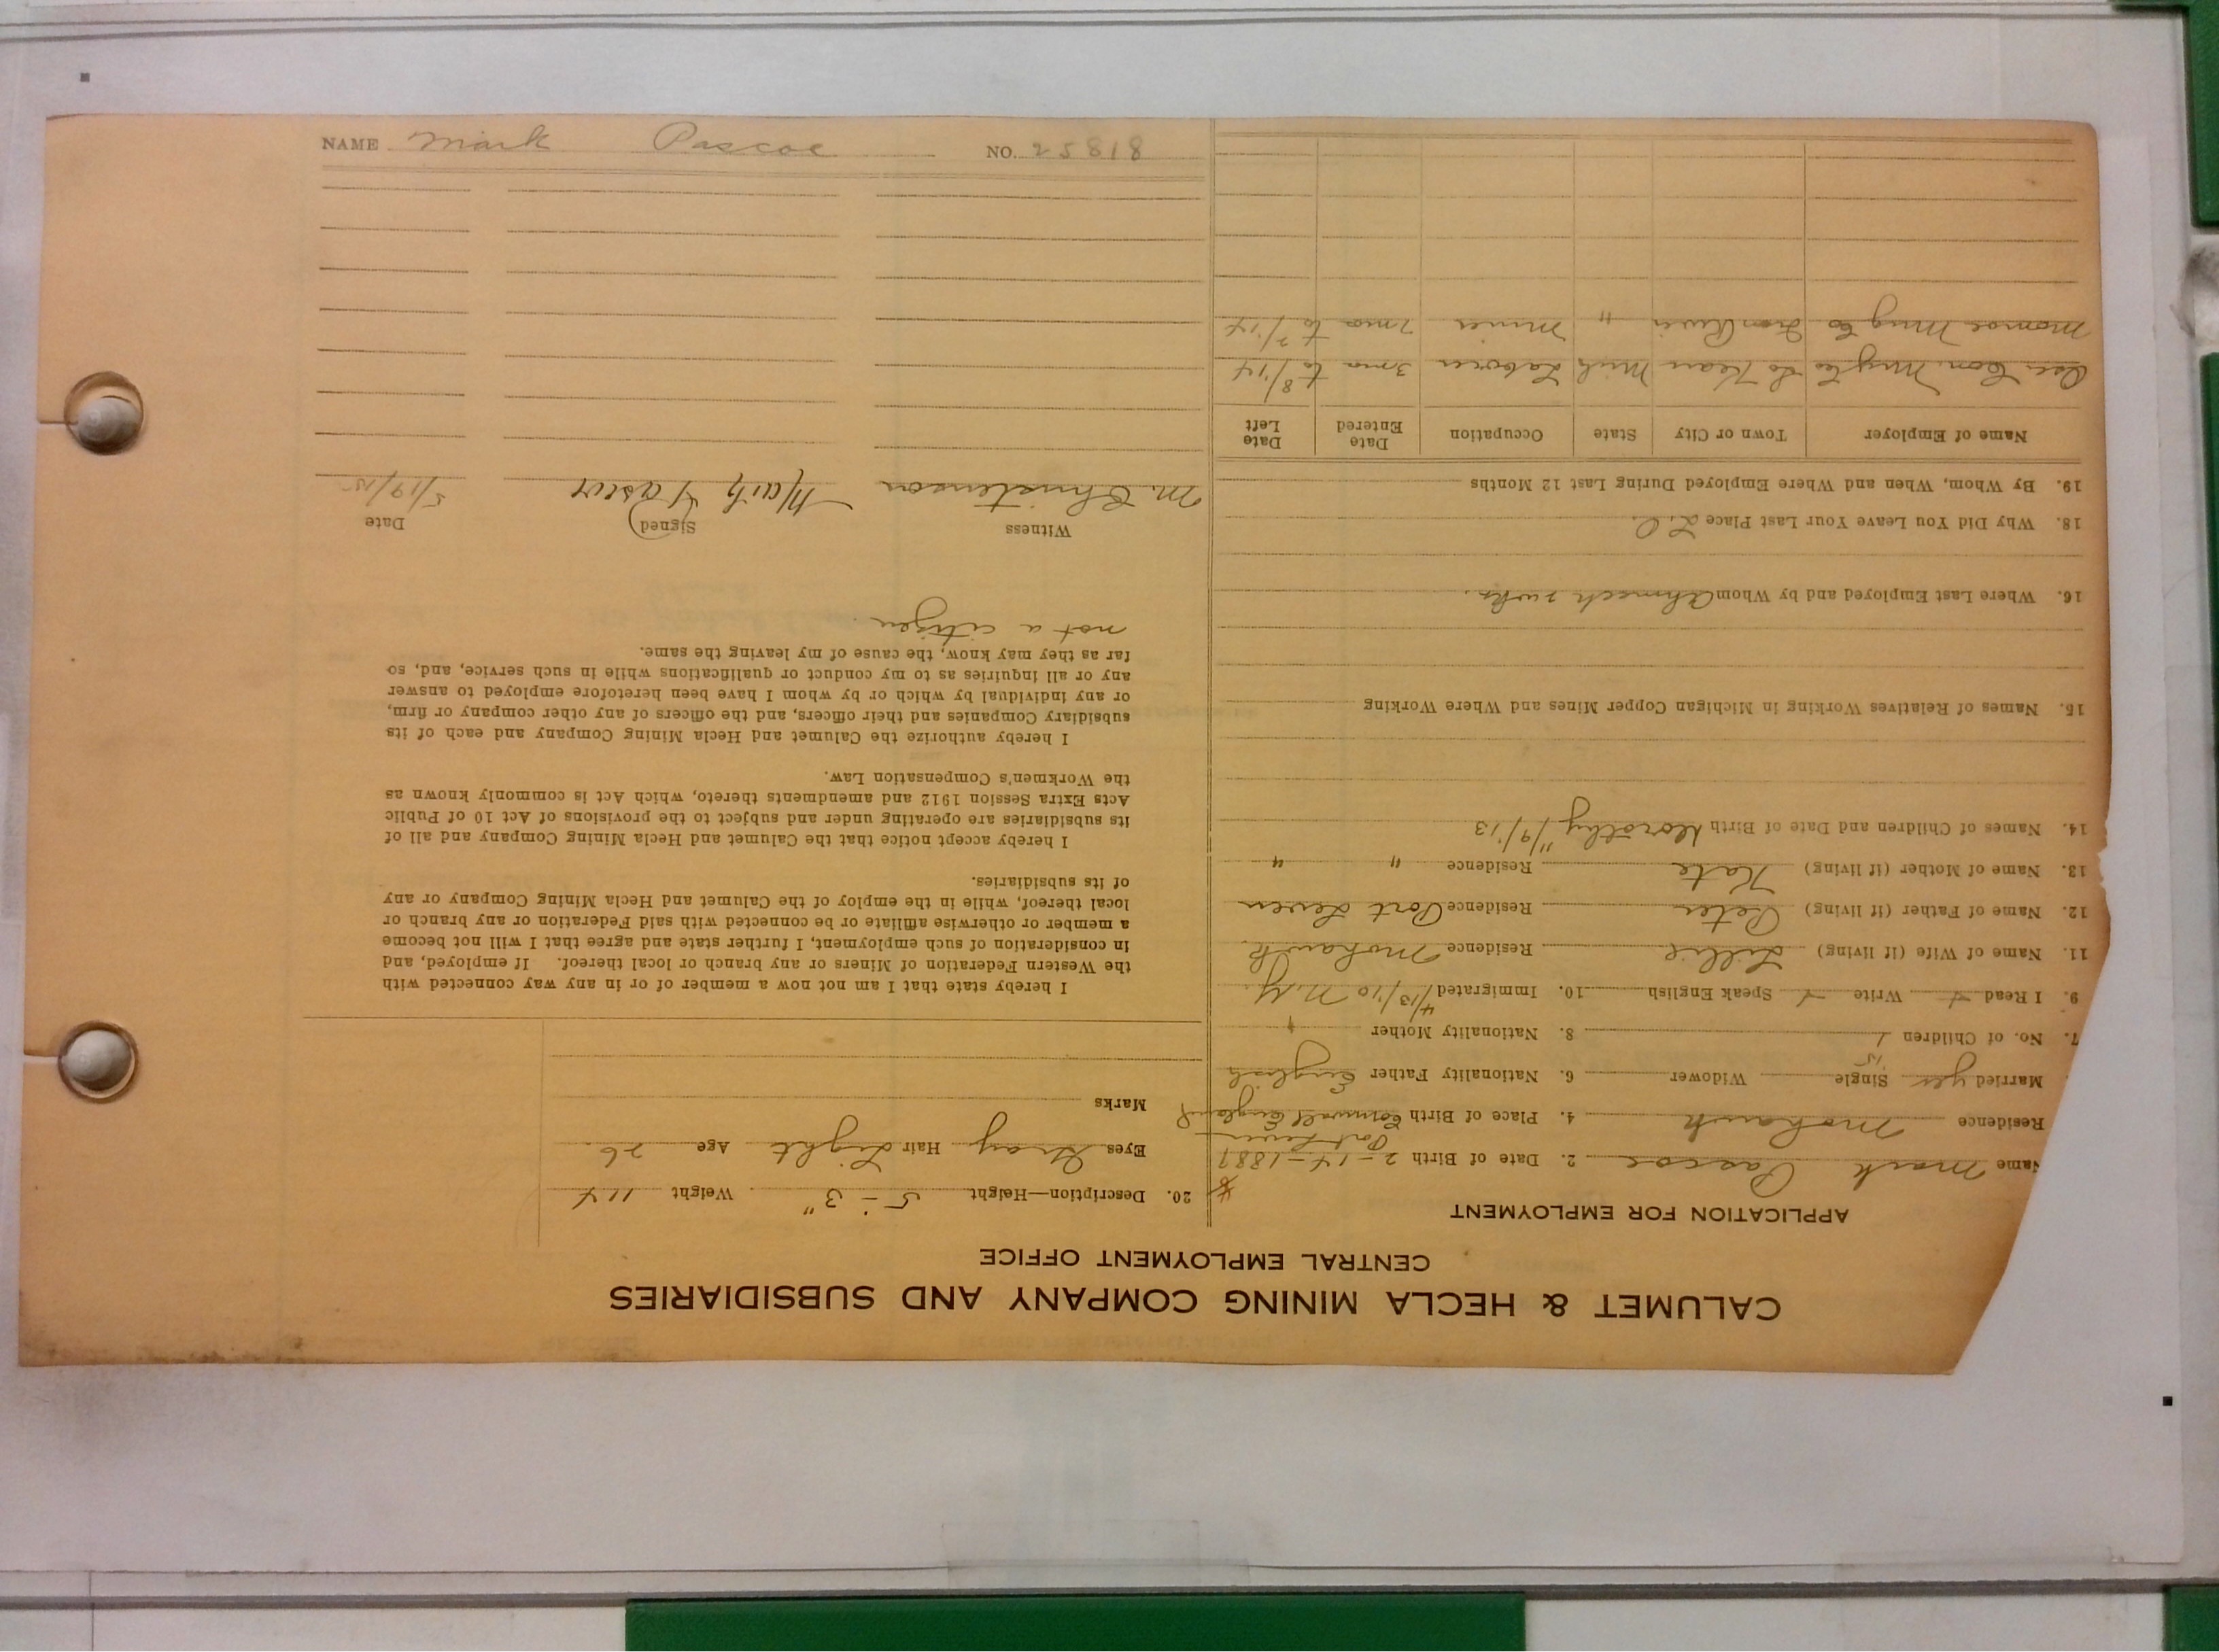 CALUMET & HECLA MINING COMPANY AND SUBSIDIARIES
CENTRAL EMPLOYMENT OFFICE
APPLICATION FOR EMPLOYMENT
Name Mark Pascoe 2. Date of Birth 2-14-1889
Port Leven
Residence Mohawk 4. Place of Birth Cornwall England
Married yes Single Widower 6. Nationality Father English
7. No. of Children 1 8. Nationality Mother "
9. I Read Write Speak English 10. Immigrated 4/13/10 N.Y.
11. Name of Wife (if living) Lillie Residence Mohawk.
12. Name of Father (if living) Peter Residence Port Leven
13. Name of Mother (if living) Kate Residence " "
14. Names of Children and Date of Birth Dorothy 11/9/13
15. Names of Relatives Working in Michigan Copper Mines and Where Working
16. Where Last Employed and by Whom Ahmeek 2 wks.
18. Why Did You Leave Your Last Place L.O.
19. By Whom, When and Where Employed During Last 12 Months
Name of Employer Town or City State Occupation Date Entered Date Left
Mng Co Mich Laborer 3 mo to 8/14
Monroe Mng Co Iron River " Miner 7 mo to 7/14
20. Description—Height 5-3" Weight 114
Eyes Gray Hair Light Age 26
Marks
I hereby state that I am not now a member of or in any way connected with
the Western Federation of Miners or any branch or local thereof. If employed, and
in consideration of such employment, I further state and agree that I will not become
a member or otherwise affiliate or be connected with said Federation or any branch or
local thereof, while in the employ of the Calumet and Hecla Mining Company or any
of its subsidiaries.
I hereby accept notice that the Calumet and Hecla Mining Company and all of
its subsidiaries are operating under and subject to the provisions of Act 10 of Public
Acts Extra Session 1912 and amendments thereto, which Act is commonly known as
the Workmen's Compensation Law.
I hereby authorize the Calumet and Hecla Mining Company and each of its
subsidiary Companies and their officers, and the officers of any other company or firm,
or any individual by which or by whom I have been heretofore employed to answer
any or all inquiries as to my conduct or qualifications while in such service, and, so
far as they may know, the cause of my leaving the same.
not a citizen.
Witness Signed Date
M. Christenson Mark Pascoe 5/19/15
NAME Mark Pascoe NO. 25818